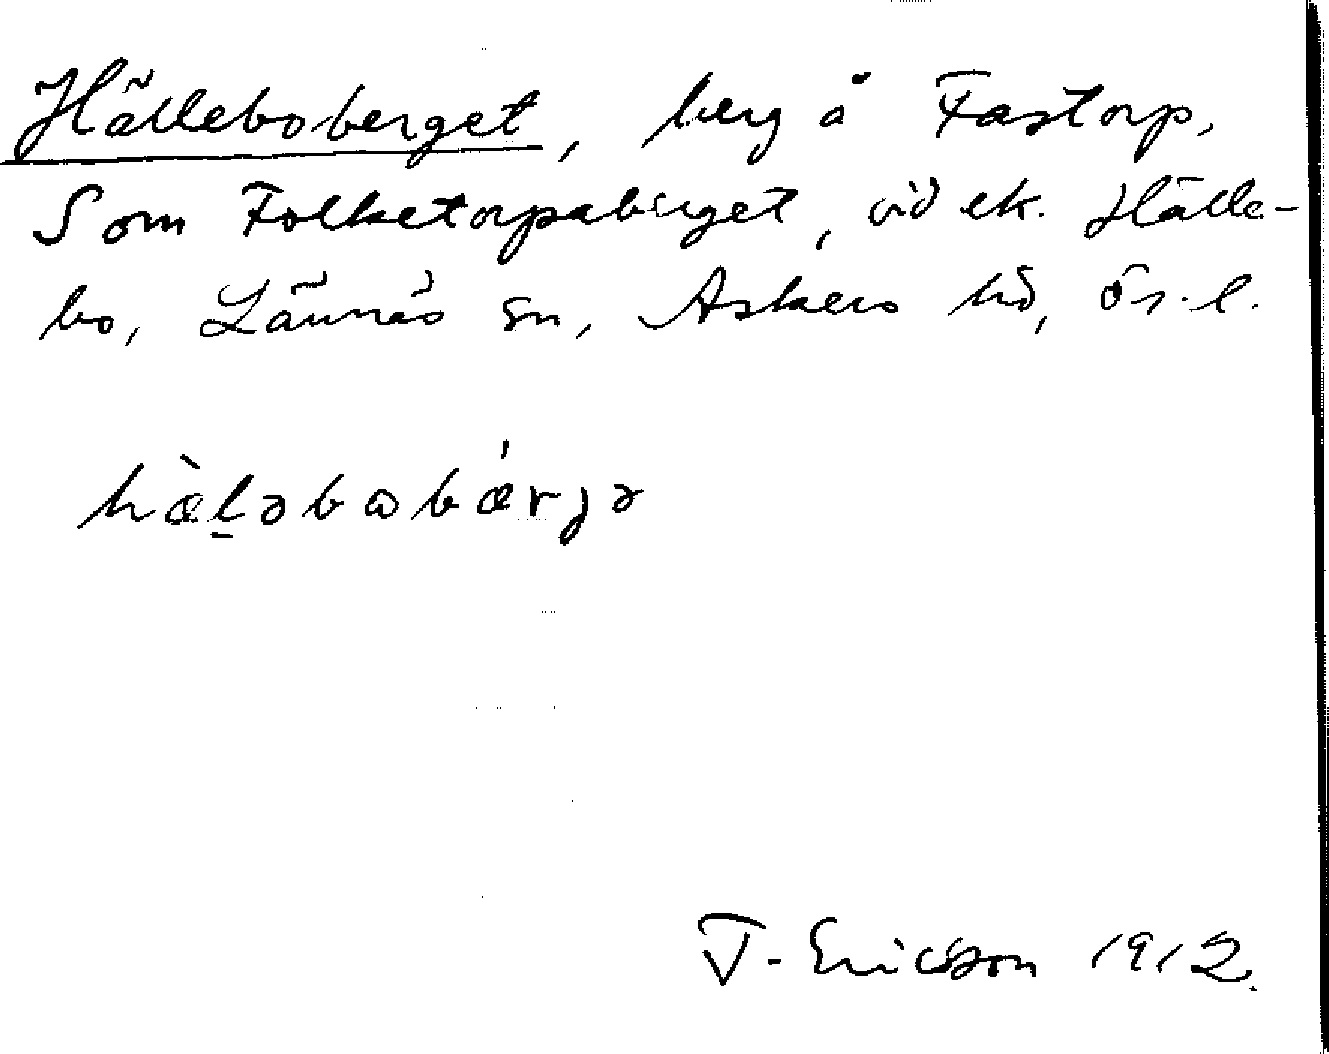 Hälleboberget, berg å Fastorp,
Som Folketorpaberget, vid ek. Hälle-
bo, Lännäs sn, Askers hd, Ör. l.
hæ̀ḻəbωbǽrjə
T. Ericsson 1912.